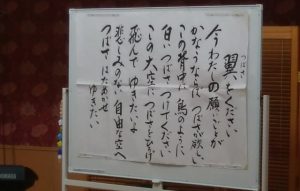 つばさ
翼をください
今わたしの願いごとが
かなうならば つばさが欲しい
この背中に 鳥のように
白いつばさ つけてください
この大空に つばさをひろげ
飛んで ゆきたいよ
悲しみのない 自由な空へ
つばさ はためかせ
ゆきたい